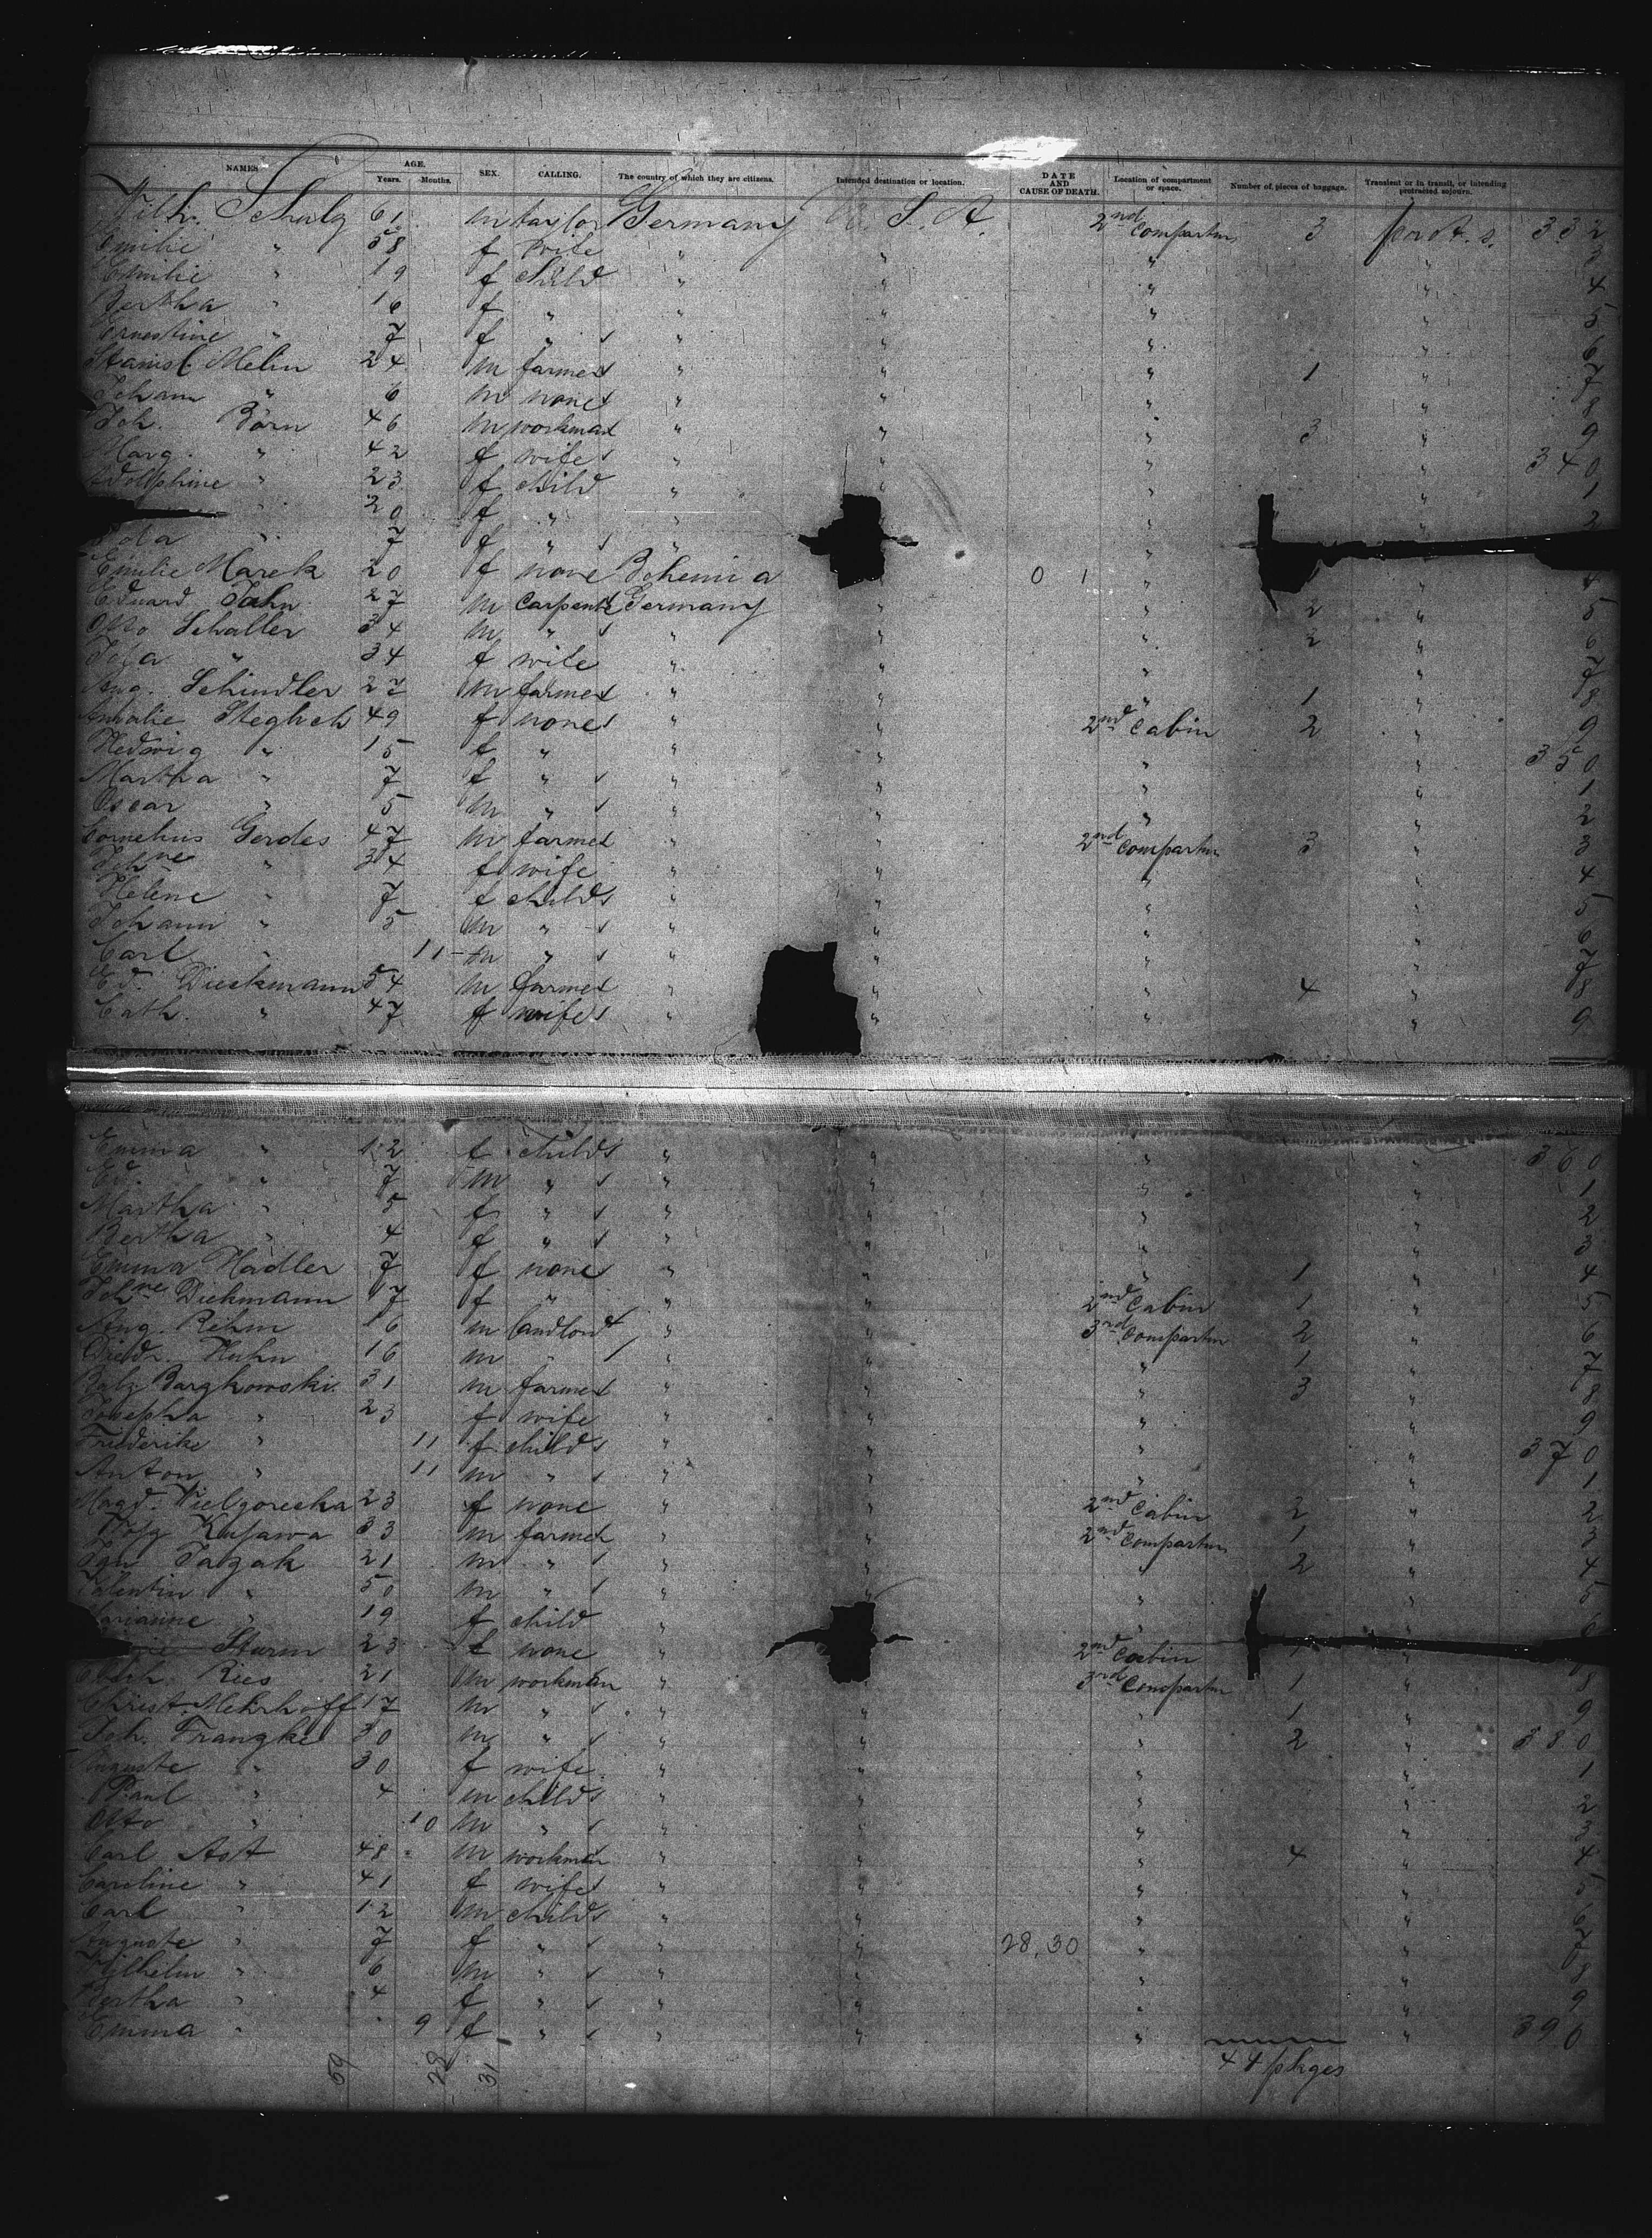 NAMES AGE. Years. Months. SEX. CALLING. The country of which they are citizens. Intended destination or location. DATE AND CAUSE OF DEATH. Location of compartment or space. Number of pieces of baggage. Transient or in transit, or intending protracted sojourn.
Wilh. Schulz 61 m taylor Germany U. S. A. 2nd Compartm 3 332
Emilie " 58 f wife " " " " 3
Emilie " 19 f child " " " " 4
Bertha " 16 f " " " " " 5
Ernestine " 7 f " " " " " 6
Stanisl Melin 24 m farmer " " " 1 " 7
Johann " 6 m none " " " " 8
Joh. Börn 46 m workman " " " 3 " 9
Marg. " 42 f wife " " " " 340
Adolphine " 23 f child " " " " 1
" 20 f " " 2
" 7 f " " "
Emilie Marek 20 f none Bohemia 0 1 " " 4
Eduard Jahn 27 m Carpent Germany " " 2 " 5
Otto Schaller 34 m " " " " 2 " 6
" 34 f wife " " " " 7
Aug. Schindler 27 m farmer " " " 1 " 8
Amalie Steglich 49 f none " " 2nd Cabin 2 " 9
Hedwig " 15 f " " " " " 350
Martha " 7 f " " " " " 1
Oscar " 5 m " " " " " 2
Cornelius Gerdes 47 m farmer " " 2nd Compartm 3 " 3
Johne " 34 f wife " " " " 4
Helene " 7 f child " " " " 5
Johann " 5 m " " " " " 6
Carl " 11 m " " " " " 7
Ed. Dieckmann 54 m farmer " " " 4 " 8
Cath. " 47 f wife " " " " 9
Emma " 12 f child " " " " 360
Ed. " 7 m " " " " " 1
Martha " 5 f " " " " " 2
Bertha " 4 f " " " " " 3
Emma Hadler 7 f none " " " 1 " 4
Johne Diekmann 17 f " " " 2nd Cabin 1 " 5
Aug. Rehm 16 m " " 3rd Compartm 2 " 6
Diedr. Huhn 16 m " " " " 1 " 7
Balz Bargkowski 31 m farmer " " " 3 " 8
Josepha " 23 f wife " " " " 9
Friederike " 11 f child " " " " 370
Anton " 11 m " " " " " 1
Magd. Wielgorecka 23 f none " " 2nd Cabin 2 " 2
Kujawa 33 m farmer " " 2nd Compartm 1 " 3
Ign Tazak 21 m " " " " 2 " 4
Valentin " 50 m " " " " " 5
Marianne " 19 f child " " "
Sturm 23 f none " 2nd Cabin "
Rees 21 m workman " " 3rd Compartm 1 " 8
Christ. Mehrhoff 17 m " " " " 1 " 9
Joh. Frangke 30 m " " " " 2 " 380
Auguste " 30 f wife " " " " 1
Paul " 4 m child " " " " 2
Otto " 10 m " " " " " 3
Carl Ast 48 m workman " " " 4 " 4
Caroline " 41 f wife " " " " 5
Carl " 12 m child " " " " 6
Auguste " 7 f " " " 28,30 " " 7
Wilhelm " 6 m " " " " " 8
Bertha " 4 f " " " " " 9
Emma " 9 f " " " " " 390
59 28 31 44 pkges